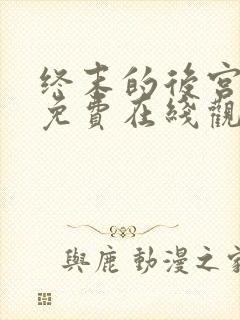 终末的後宮
免費在綫觀
與鹿 動漫之家